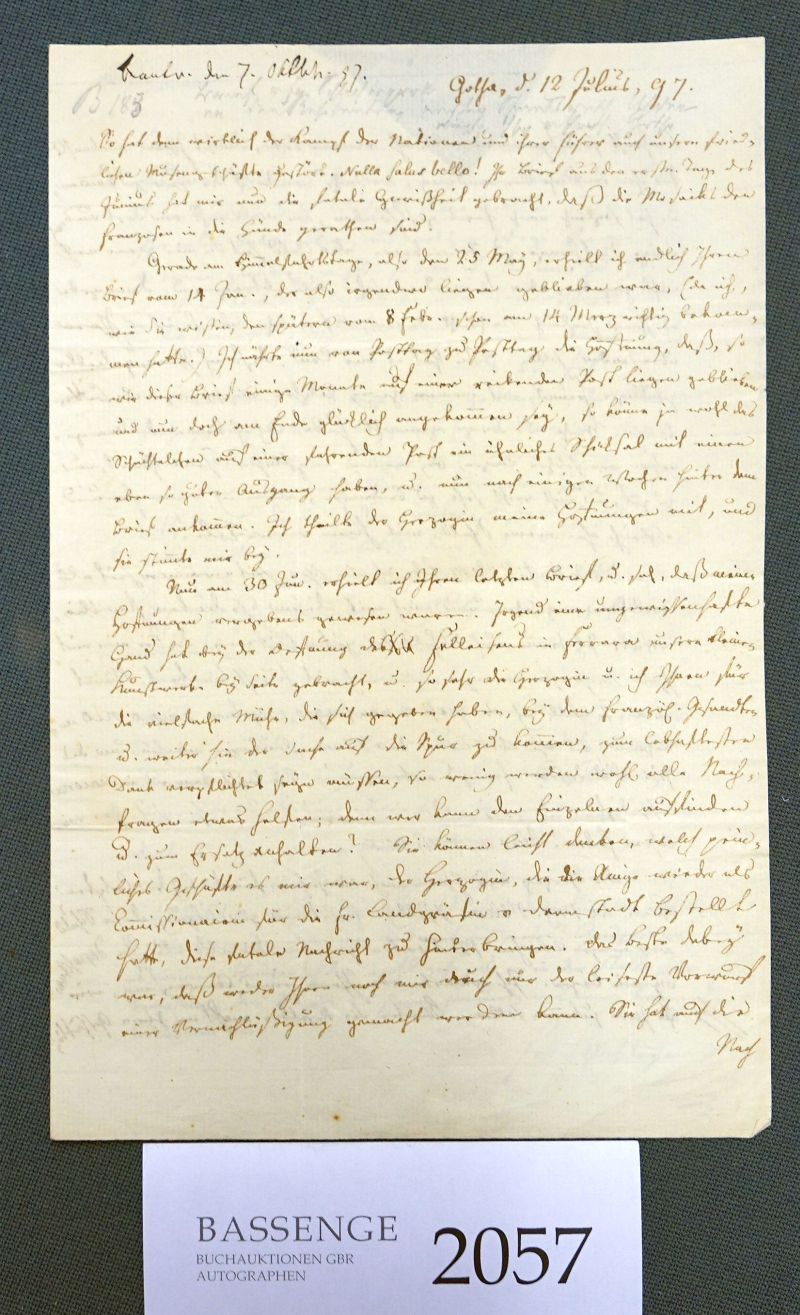 beantw. den 7. Oktbr. 97.
Gotha, d. 12 Julius, 97.
B 183
So hat denn wirklich der Kampf der Nationen und ihrer Führer auch unsern fried-
lichen Musengeschäfte gestört. Nulla salus bello! Ihr Brief aus den ersten Tagen des
Junius hat mir nun die fatale Gewißheit gebracht, daß die Mosaiks den
Franzosen in die Hände gerathen sind.
Gerade am Himmelfahrtstage, also den 25 May, erhielt ich endlich Ihren
Brief vom 14 Jan., der also irgendwo liegen geblieben war, (da ich,
wie Sie wissen, den spätern vom 8 Febr. schon am 14 Merz richtig bekom-
men hatte.) Ich nährte nun von Posttag zu Posttag die Hoffnung, daß, so
wie dieser Brief einige Monate auf einer reitenden Post liegen geblieben
und nun doch am Ende glücklich angekommen sey, so könne ja wohl das
Schächtelchen auf einer fahrenden Post ein ähnliches Schicksal mit einem
eben so guten Ausgang haben, u. nun nach einigen Wochen hinter dem
Brief ankommen. Ich theilte der Herzogin meine Hoffnungen mit, und
sie stimmte mir bey.
Nun am 30 Jun. erhielt ich Ihren letzten Brief, u. sah, daß meine
Hoffnungen vergebens gewesen waren. Irgend eine ungewissenhafte
Hand hat bey der Oeffnung des Felleisens in Ferrara unsere kleinen
Kunstwerke bey Seite gebracht, u. so sehr die Herzogin u. ich Ihnen für
die vielfache Mühe, die Sie sich gegeben haben, bey dem französ. Gesandten
u. weiter hin der Sache auf die Spur zu kommen, zum lebhaftesten
Dank verpflichtet seyn müssen, so wenig werden wohl alle Nach-
fragen etwas helfen; denn wer kann den Einzelnen auffinden
u. zum Ersatz anhalten? Sie können leicht denken, welch pein-
liches Geschäfte es mir war, der Herzogin, die die Ringe wieder als
Commissionairin für die Fr. Landgräfin v Darmstadt bestellt
hatte, diese fatale Nachricht zu hinterbringen. Das beste dabey
war, daß weder Ihnen noch mir auch nur der leiseste Vorwurf
einer Vernachläßigung gemacht werden kann. Sie hat auf die
Nach
BASSENGE
BUCHAUKTIONEN GBR
AUTOGRAPHEN
2057